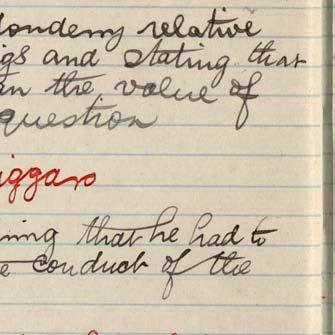 londerry relative
gs and stating that
in the value of
question
iggars
ning that he had to
e conduct of the